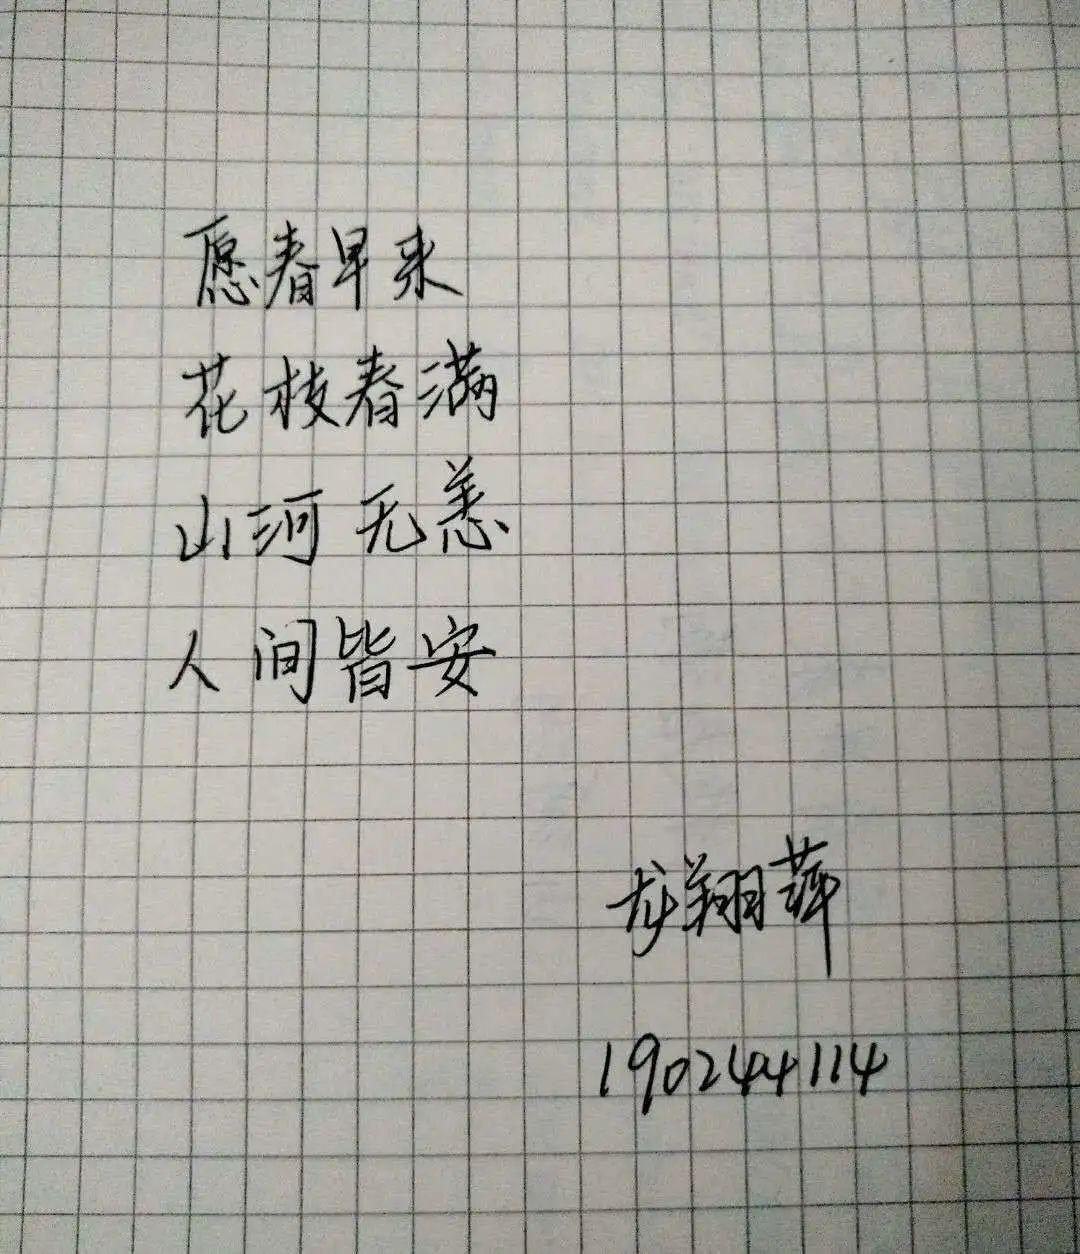 愿春早来
花枝春满
山河无恙
人间皆安
龙翔萍
190244114